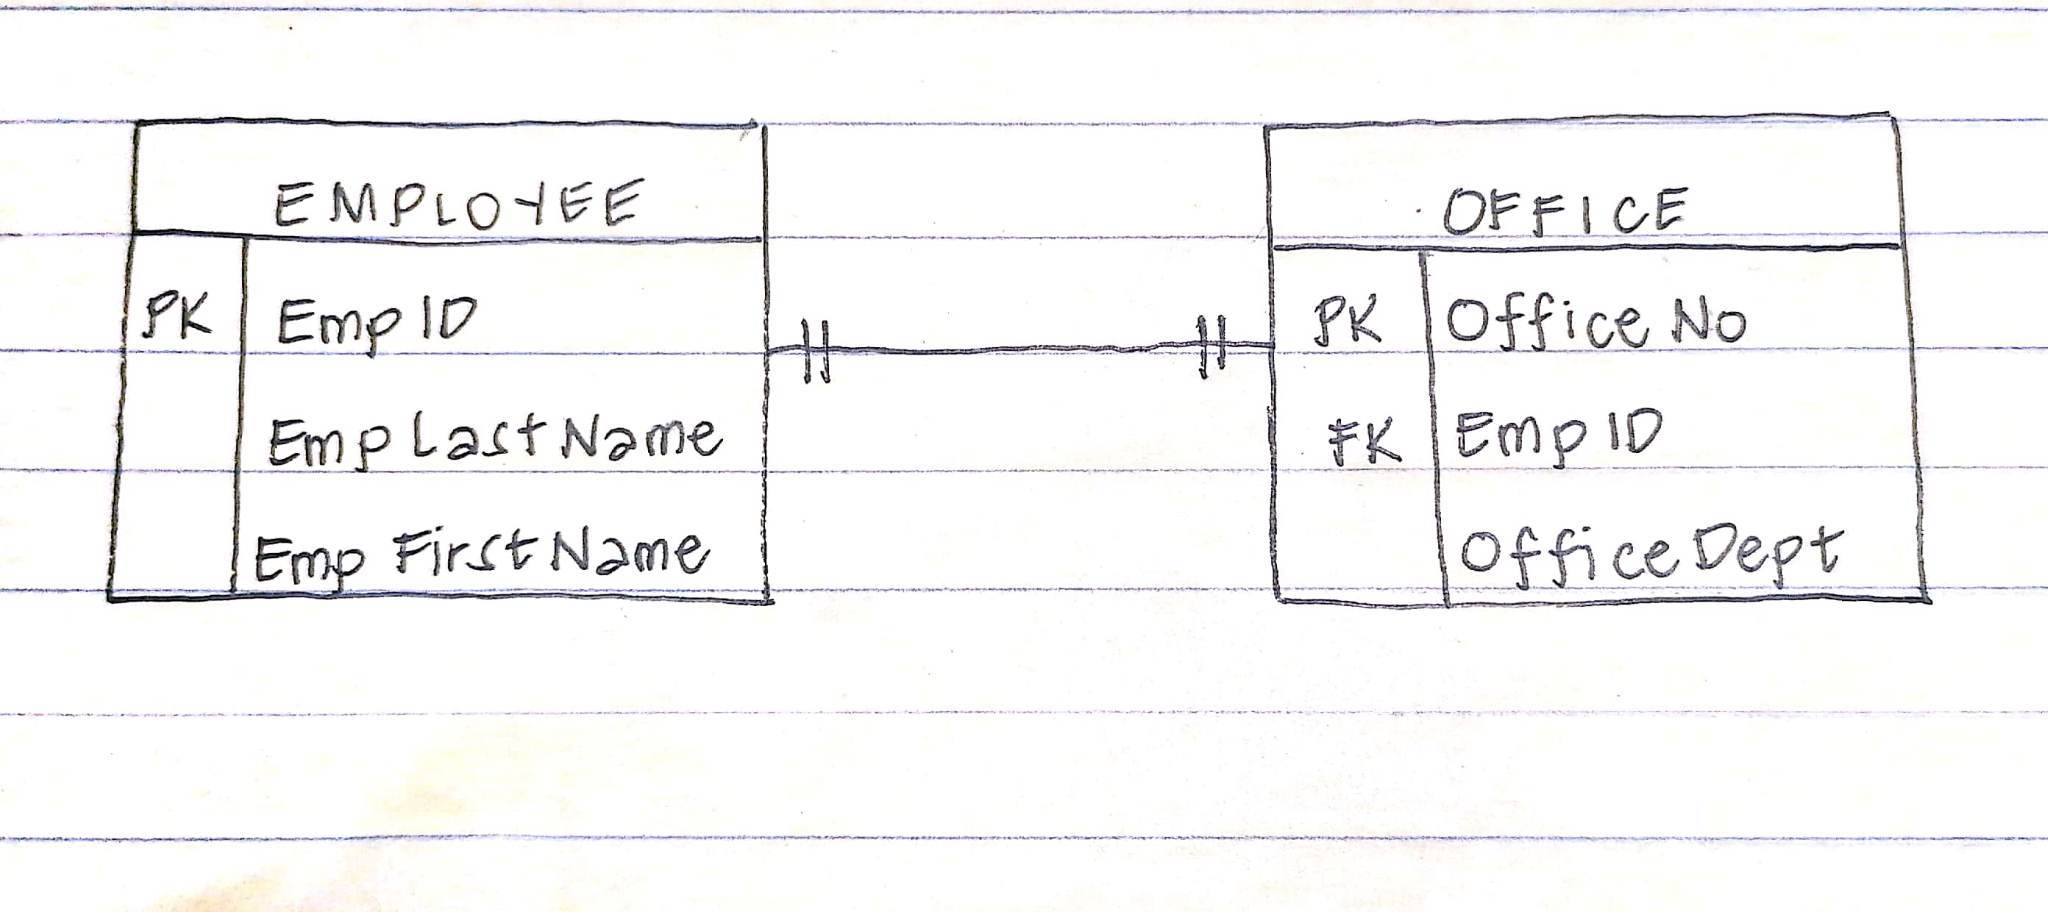 EMPLOYEE
PK Emp ID
Emp Last Name
Emp First Name
OFFICE
PK Office No
FK Emp ID
Office Dept